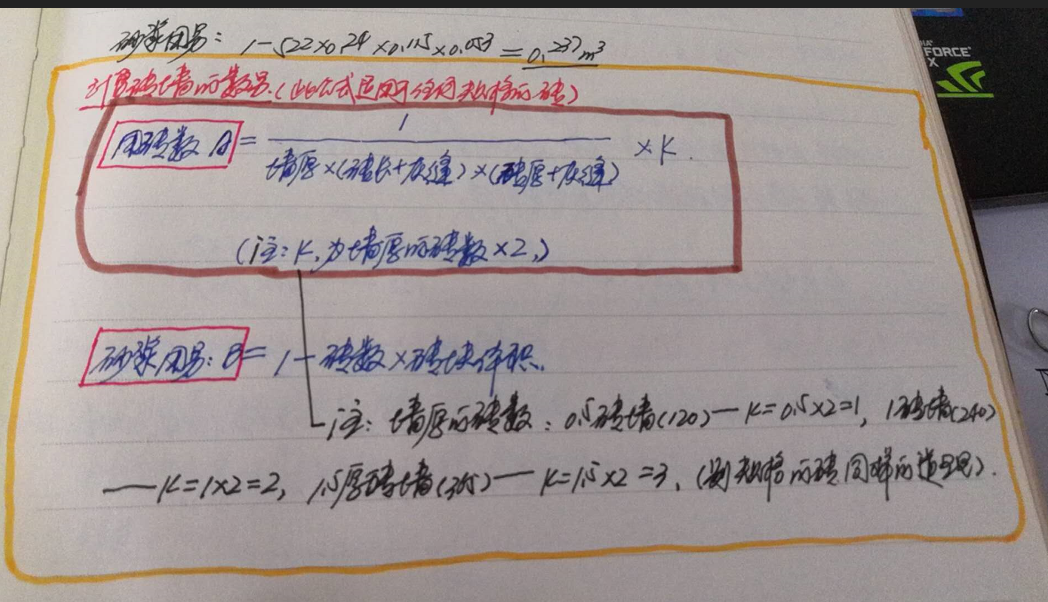 砂浆用量：1-522×0.24×0.115×0.053=0.237m³
FORCE
X
计算砖墙的数量.(此公式适用于任何规格的砖)
用砖数 A=1/墙厚×(砖长+灰缝)×(砖厚+灰缝)×K.
(注:K,为墙厚的砖数×2,)
砂浆用量：B=1-砖数×砖块体积.
注：墙厚的砖数：0.5砖墙(120)—K=0.5×2=1, 1砖墙(240)
—K=1×2=2, 1.5厚砖墙(365)—K=1.5×2=3,(别规格的砖同样的道理).